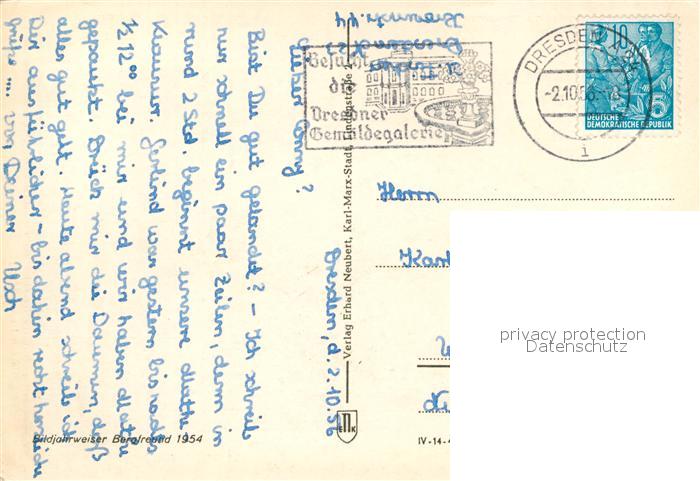 Dresden, d. 2.10.56
Lieber
Bist Du gut gelandet? – Ich schreib
nur schnell ein paar Zeilen, denn in
rund 2 Std. beginnt unsere Mathe
Klausur. Gerlind war gestern bis nachts
1/2 12 00 bei mir und wir haben Mathe
gepaukt. Drück mir die Daumen, daß
alles gut geht. Heute abend schreib ich
Dir ausführlicher – bis dahin recht herzliche
Grüße ... von Deiner Usch
Dresden A 27
44
Besucht
die
Dresdner
Gemäldegalerie
DRESDEN
-2.10.56
i
10
5
DEUTSCHE
DEMOKRATISCHE REPUBLIK
Herrn
Verlag Erhard Neubert, Karl-Marx-Stadt, Lindenstraße
E N K
IV-14-
Bildjahrweiser Bergfreund 1954
privacy protection
Datenschutz